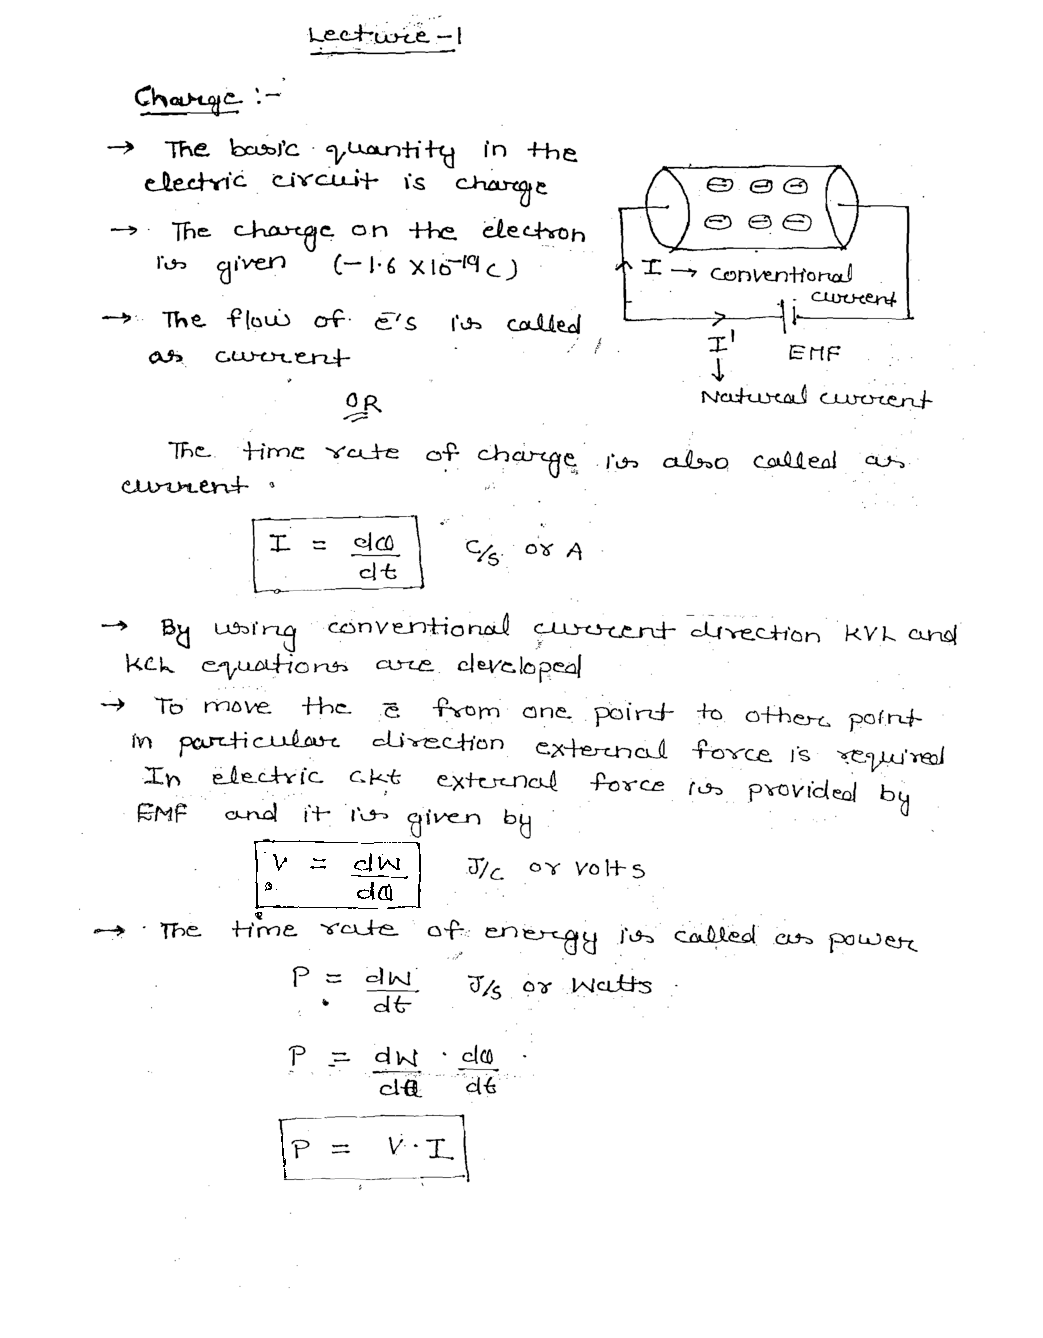 Lecture-1
Charge :-
→ The basic quantity in the
electric circuit is charge
→ The charge on the electron
is given (-1.6 X 10^-19 C)
→ The flow of ē's is called
as current
I → conventional
current
I'
EMF
↓
Natural current
OR
The time rate of charge is also called as
current.
I = dQ/dt C/s or A
→ By using conventional current direction KVL and
KCL equations are developed
→ To move the ē from one point to other point
in particular direction external force is required
In electric ckt external force is provided by
EMF and it is given by
V = dW/dQ J/C or volts
→ The time rate of energy is called as power
P = dW/dt J/s or Watts
P = dW/dQ · dQ/dt
P = V·I